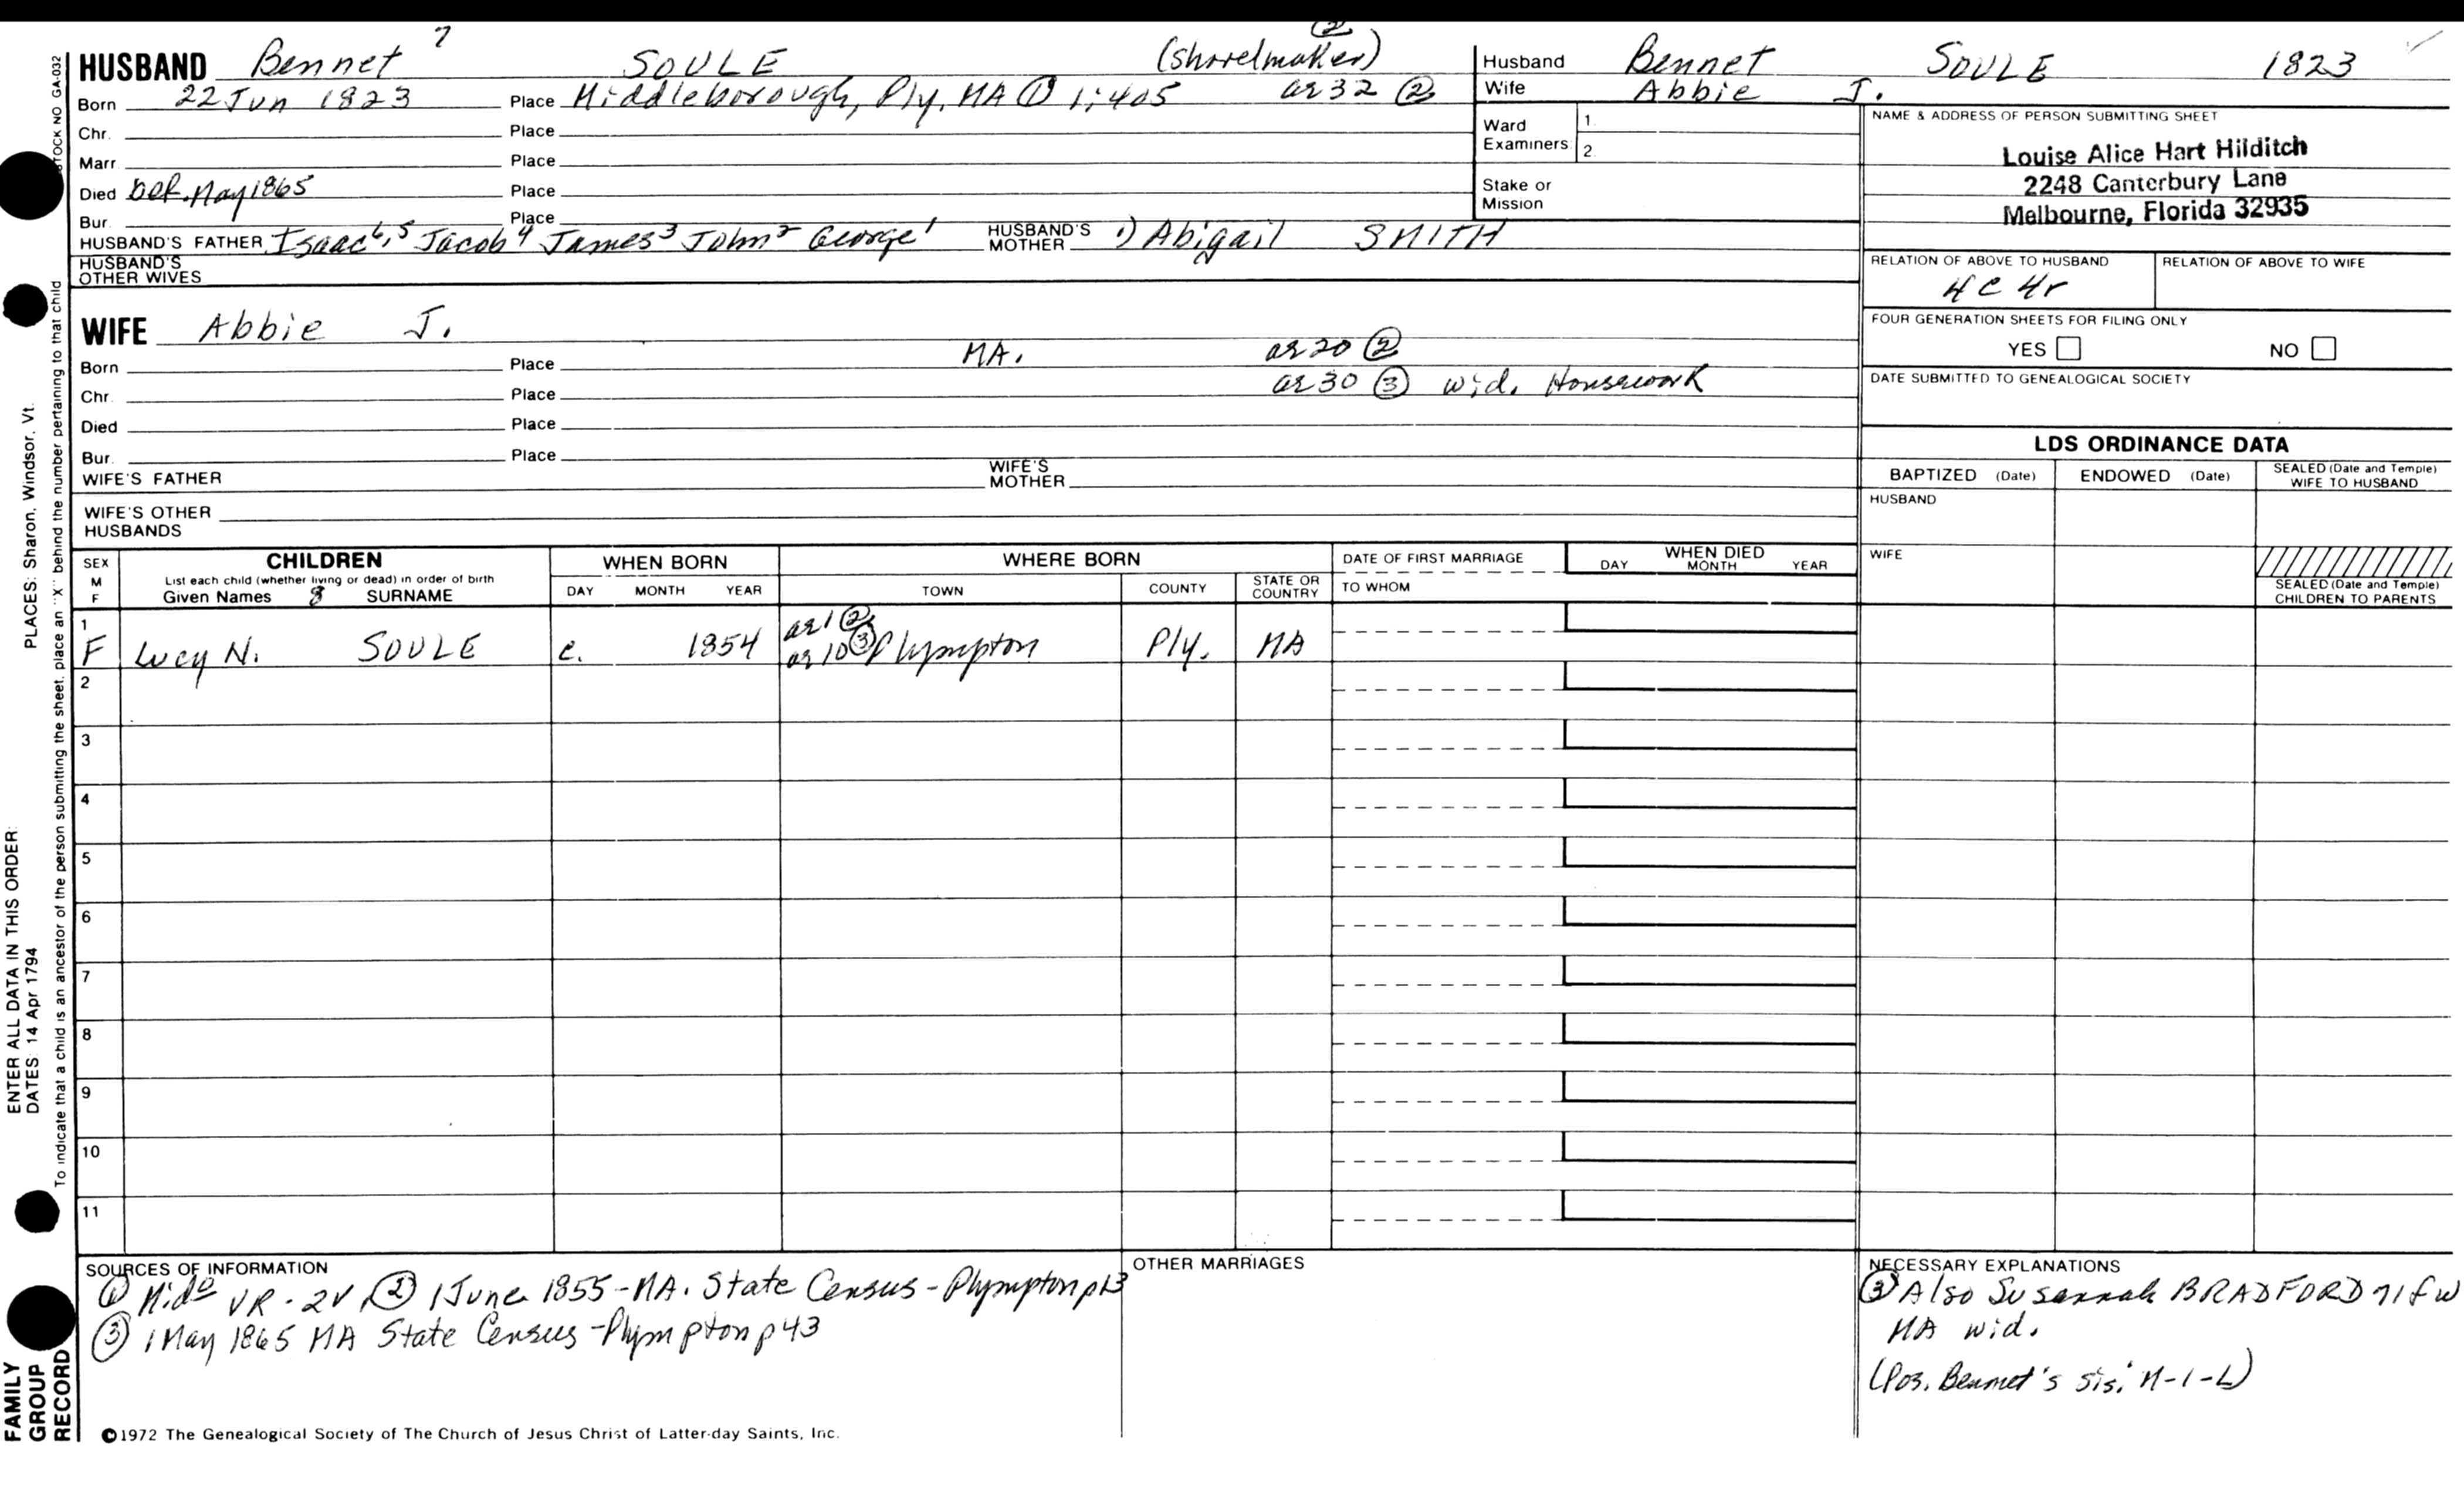 HUSBAND Bennet 7 SOULE (shovelmaker) ②
Born 22 Jun 1823 Place Middleborough, Ply, MA ① 1:405 ae 32 ②
Chr. Place
Marr Place
Died bef. May 1865 Place
Bur. Place
HUSBAND'S FATHER Isaac6,5 Jacob4 James3 John2 George1 HUSBAND'S MOTHER 1) Abigail SMITH
HUSBAND'S OTHER WIVES
Husband Bennet SOULE 1823
Wife Abbie J.
Ward Examiners: 1. 2.
Stake or Mission
NAME & ADDRESS OF PERSON SUBMITTING SHEET
Louise Alice Hart Hilditch
2248 Canterbury Lane
Melbourne, Florida 32935
RELATION OF ABOVE TO HUSBAND RELATION OF ABOVE TO WIFE
4C 4r
FOUR GENERATION SHEETS FOR FILING ONLY
YES NO
DATE SUBMITTED TO GENEALOGICAL SOCIETY
WIFE Abbie J.
Born Place MA. ae 20 ②
Chr. Place ae 30 ③ wid. Housework
Died Place
Bur. Place
WIFE'S FATHER WIFE'S MOTHER
WIFE'S OTHER HUSBANDS
LDS ORDINANCE DATA
BAPTIZED (Date) ENDOWED (Date) SEALED (Date and Temple) WIFE TO HUSBAND
HUSBAND
WIFE
SEALED (Date and Temple) CHILDREN TO PARENTS
SEX M F CHILDREN WHEN BORN WHERE BORN DATE OF FIRST MARRIAGE WHEN DIED
List each child (whether living or dead) in order of birth
Given Names 8 SURNAME DAY MONTH YEAR TOWN COUNTY STATE OR COUNTRY TO WHOM DAY MONTH YEAR
1 F Lucy N. SOULE c. 1854 ae 1 ② ae 10 ③ Plympton Ply. MA
2
3
4
5
6
7
8
9
10
11
SOURCES OF INFORMATION
① Mido VR - 2V ② 1 June 1855 - MA. State Census - Plympton p13
③ 1 May 1865 MA State Census - Plympton p 43
OTHER MARRIAGES
NECESSARY EXPLANATIONS
③ Also Susannah BRADFORD 71 f w
MA wid.
(Pos. Bennet's sis. M-I-L)
©1972 The Genealogical Society of The Church of Jesus Christ of Latter-day Saints, Inc.
STOCK NO GA-032
To indicate that a child is an ancestor of the person submitting the sheet, place an "X" behind the number pertaining to that child
ENTER ALL DATA IN THIS ORDER:
DATES: 14 Apr 1794 PLACES: Sharon, Windsor, Vt.
FAMILY GROUP RECORD